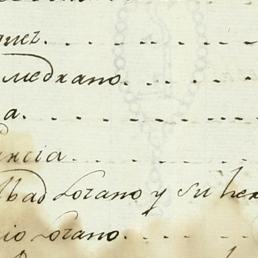 quez.
Medrano.
a.
García.
Abad Lozano y su her
io Lozano.